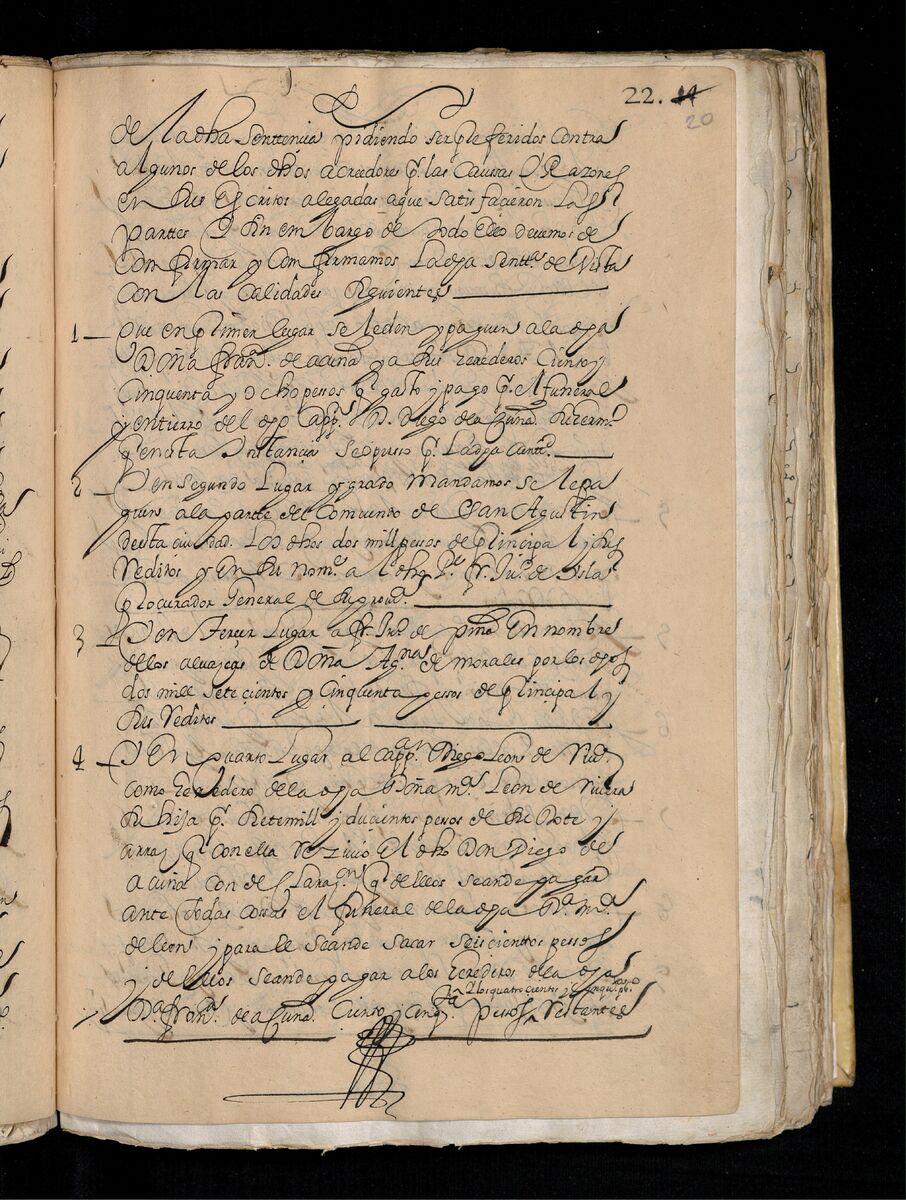 22. 14
20
de la dha senttencia pidiendo ser preferidos contra
algunos de los dhos acreedores p.r las Caussas y Razones
en sus Escritos alegadas a que satisfacieron las
partes y sin embargo de todo ello devemos de
Confirmar y confirmamos La dha Sentt.a de Vista
Con las Calidades siguientes
1 que en primer lugar se le den y paguen a la dha
Doña fran.ca de acuña y a sus erederos Ciento y
Cinquenta y ocho pessos q.e gasto y pago p.r el funeral
y entierro del dho Capp.n D. Diego de Acuña su herm.o
q.e en esta Instancia se opusso p.r La dha Cantt.d
2 Y en segundo Lugar y grado Mandamos se le pa
guen a la parte del Comvento de San Agustin
desta ciudad. Los dhos dos mill pesos de principal y sus
Reditos y en su nom.e a l dho P.e fr. Ju.o de
Procurador General de su prov.a
3 Y en Tercer Lugar a fr. Ju.o de Piña En nombre
de los alvaceas de Doña Ag.nas de morales por los dhos
dos mill setecientos y Cinquenta pessos de principal y
sus Reditos
4 Y En quarto Lugar al Capp.an Diego Leon de
como Eredero de la dha Doña m.a Leon de
su hija p.r sietemill y ducientos pesos de su Dote y
arras q.e con ella Recivio El dho Don Diego de
acuña con declaraz.on q.e de ellos se an de pagar
ante todas cosas el funeral de la dha D.a m.a
de leon y para el se an de sacar seiscientos pessos
y de ellos se an de pagar a los Erederos de la dha
y los quatrocientos y Cinqu.ta p.os
D.a fran.ca de acuña. Ciento y Cinq.ta pessos Restantes